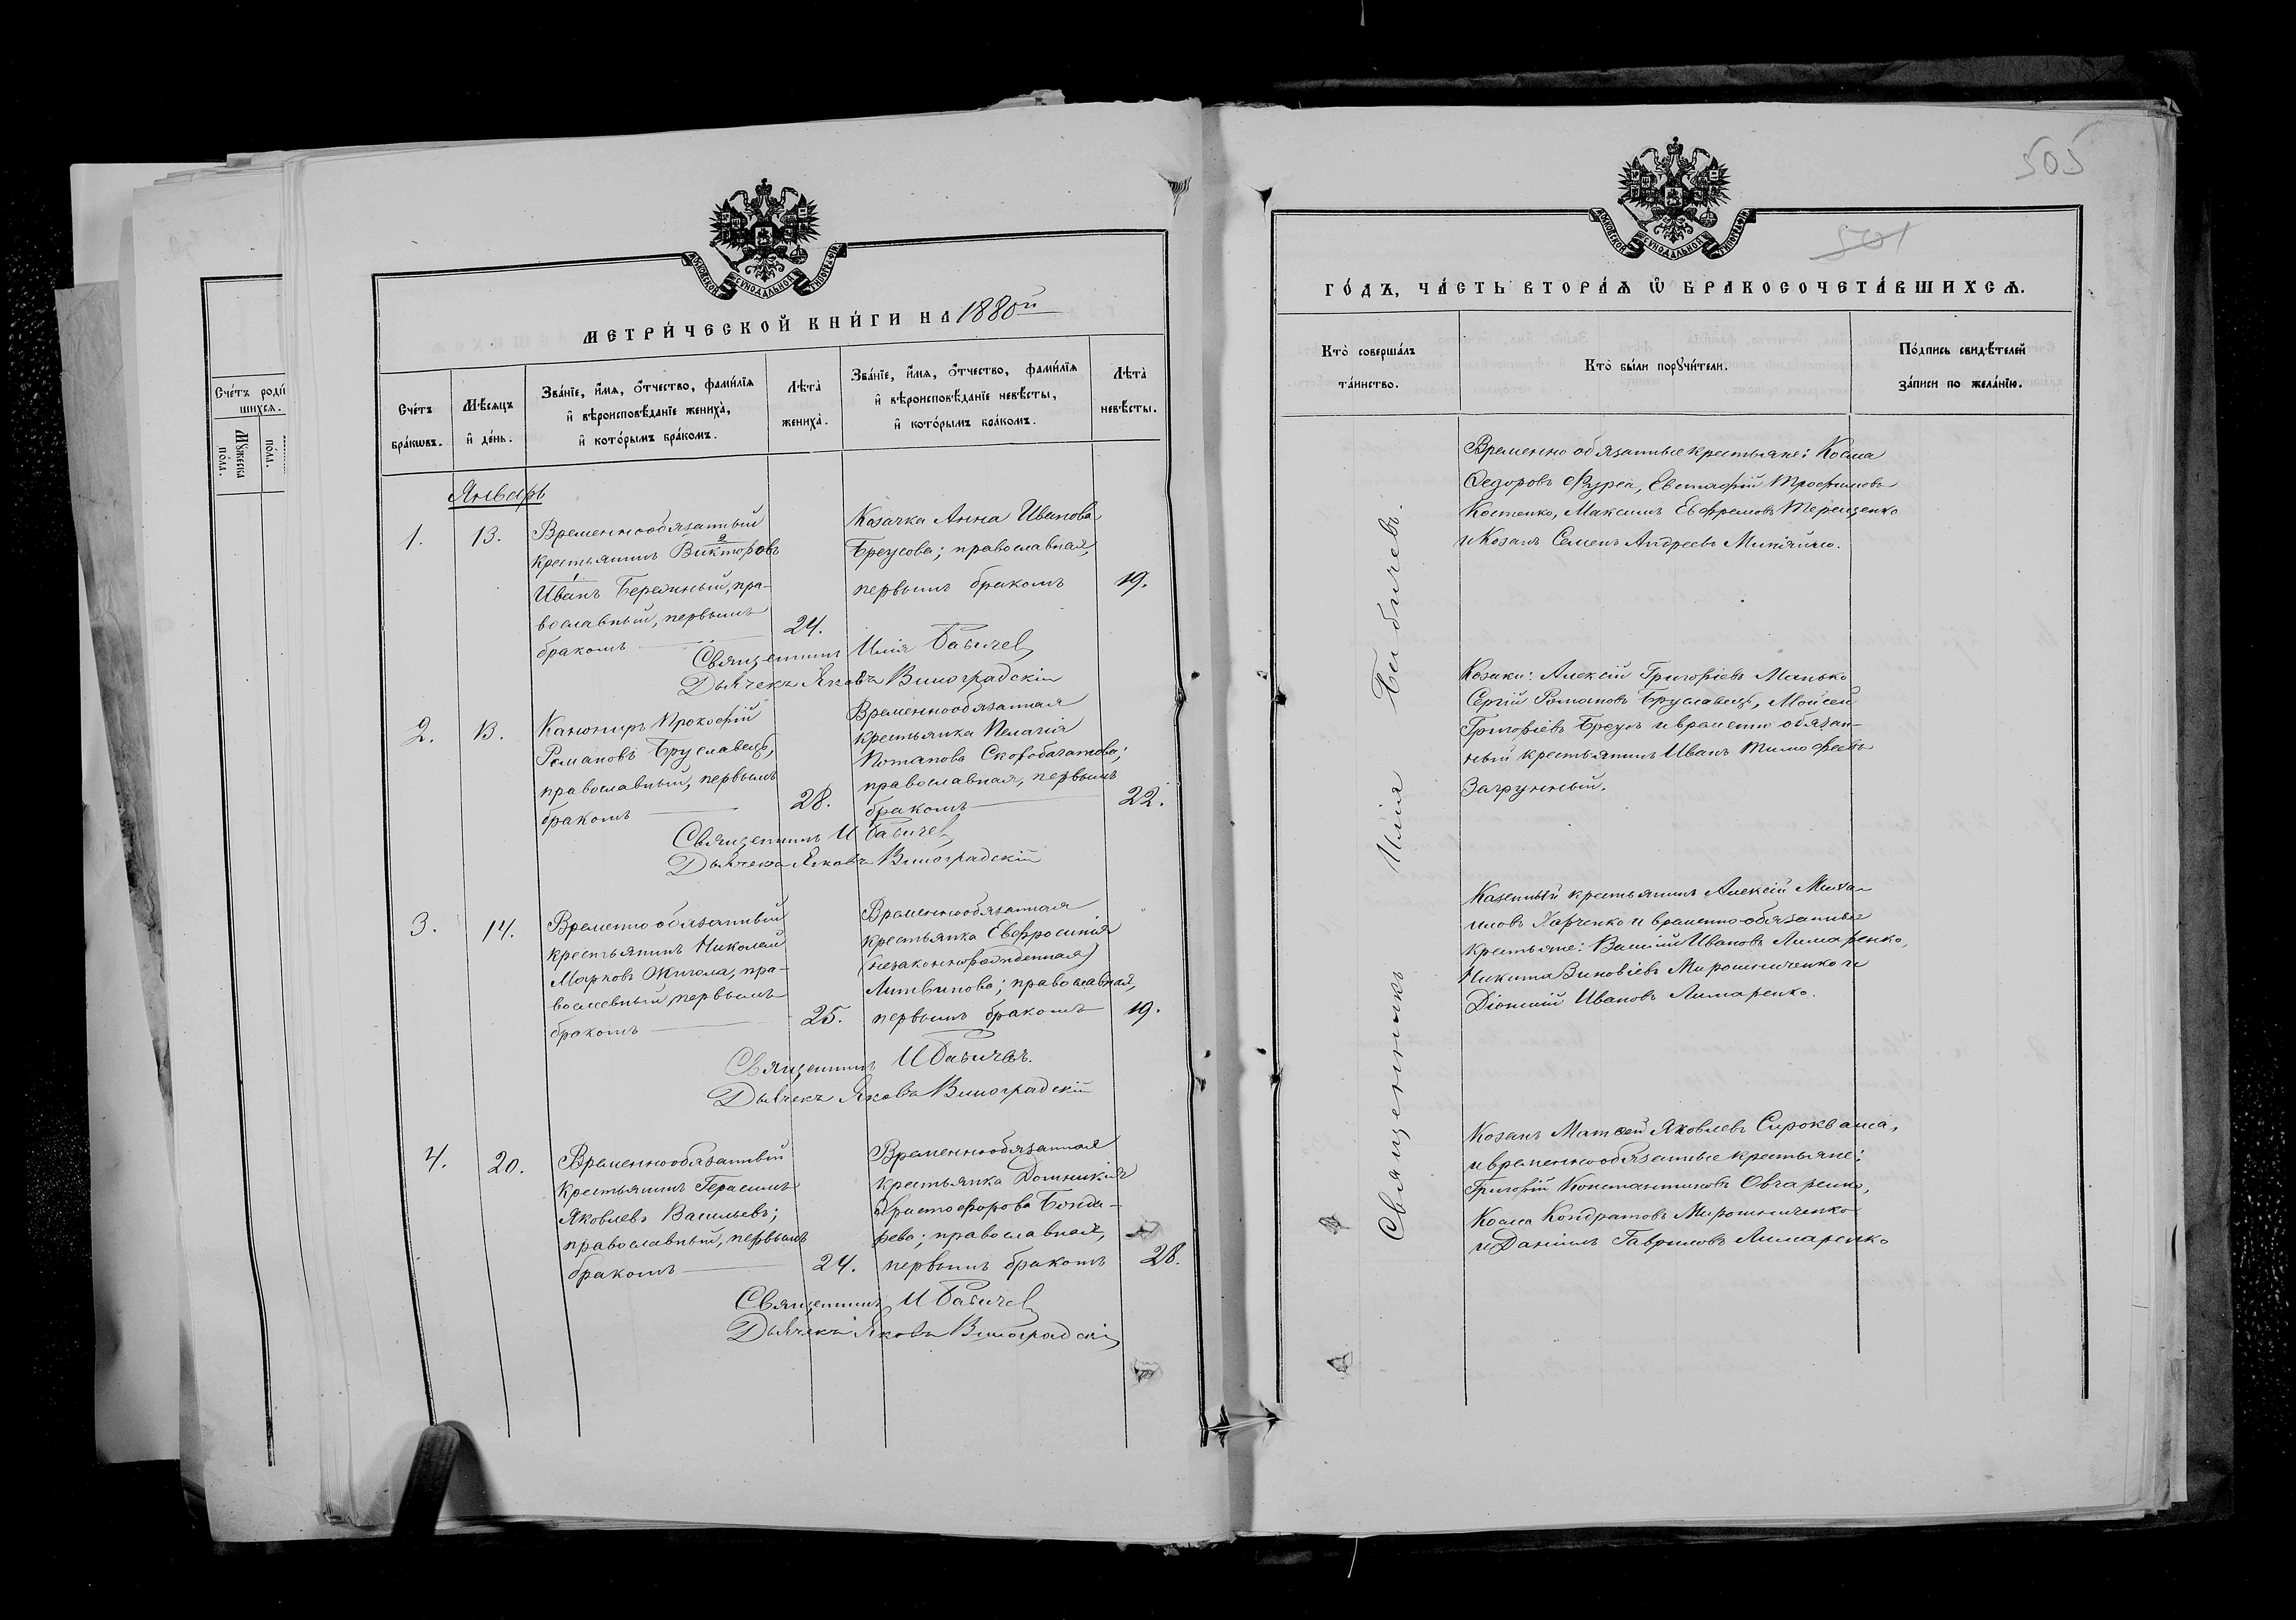 МЕТРИ́ЧЕСКОЙ КНИ́ГИ НА 1880й
Сче́тъ бра́кѡвъ.
Мѣ́сяцъ и҆ де́нь.
Зва́нїе, и҆́мѧ, ѻ҆́тчество, фами́лїѧ
и҆ вѣроисповѣ́данїе жениха̀,
и҆ кото́рымъ бра́комъ.
Лѣта̀ жениха̀.
Зва́нїе, и҆́мѧ, ѻ҆́тчество, фами́лїѧ
и҆ вѣроисповѣ́данїе невѣ́сты,
и҆ кото́рымъ бра́комъ.
Лѣта̀ невѣ́сты.
Январь
1.
13.
Временнообязанный
крестьянинъ Викторовъ
Иванъ Бережный, пра-
вославный, первымъ
бракомъ
24.
Козачка Анна Иванова
Бреусова; православная,
первымъ бракомъ
19.
Священникъ Илія Бабичев
Дьячекъ Яковъ Виноградскій
2.
13.
Канониръ Прокофій
Романовъ Бруславецъ,
православный, первымъ
бракомъ
28.
Временнообязанная
крестьянка Пелагія
Потапова Скоробагатова;
православная, первымъ
бракомъ
22.
Священникъ И Бабичев
Дьячекъ Яковъ Виноградскій
3.
14.
Временно обязанный
крестьянинъ Николай
Марковъ Жигола, пра-
вославный, первымъ
бракомъ
25.
Временнообязанная
крестьянка Евфросинія
(незаконнорожденная)
Литвинова; православная,
первымъ бракомъ
19.
Священникъ И Бабичевъ.
Дьячекъ Яковъ Виноградскій
4.
20.
Временнообязанный
крестьянинъ Герасимъ
Яковлевъ Васильевъ;
православный, первымъ
бракомъ
24.
Временнообязанная
крестьянка Домникія
Христофорова Бонда-
рева; православная,
первымъ бракомъ
28.
Священникъ И Бабичев
Дьячекъ Яковъ Виноградскій
Сче́тъ роди́
шихсѧ.
Мꙋ́жеска по́ла.
по́ла.
505
501
МОСКОВСКОЙ СѴНОДАЛЬНОЙ ТИПОГРАФІИ
ГО́ДЪ, ЧА́СТЬ ВТОРА́Ѧ Ѽ БРАКОСОЧЕТА́ВШИХСѦ.
Кто̀ соверша́лъ та́инство.
Кто̀ бы́ли порꙋчи́тели.
По́дпись свидѣ́телей за́писи по жела́нїю.
Священникъ Илія Бабичевъ.
Временно обязанные крестьяне: Косма
Федоровъ Фурса, Евстафій Трофимовъ
Костенко, Максимъ Ефремовъ Терещенко
и Козакъ Семенъ Андреевъ
Козаки: Алексій Григоріевъ Манько
Сергій Романовъ Бруславецъ, Мойсей
Григоріевъ Бреусъ и временно обязан-
ный крестьянинъ Иванъ Тимофеевъ
Загрунный.
Казенный крестьянинъ Алексій Михаи-
ловъ Харченко и временно-обязанные
крестьяне: Василій Ивановъ Лимаренко,
Никита Зиновіевъ Мирошниченко и
Діонисій Ивановъ Лимаренко.
Козакъ Матвей Яковлевъ Сирокваша,
и временнообязанные крестьяне:
Григорій Константиновъ Овчаренко,
Косма Кондратовъ Мирошниченко
и Даніилъ Гавриловъ Лимаренко